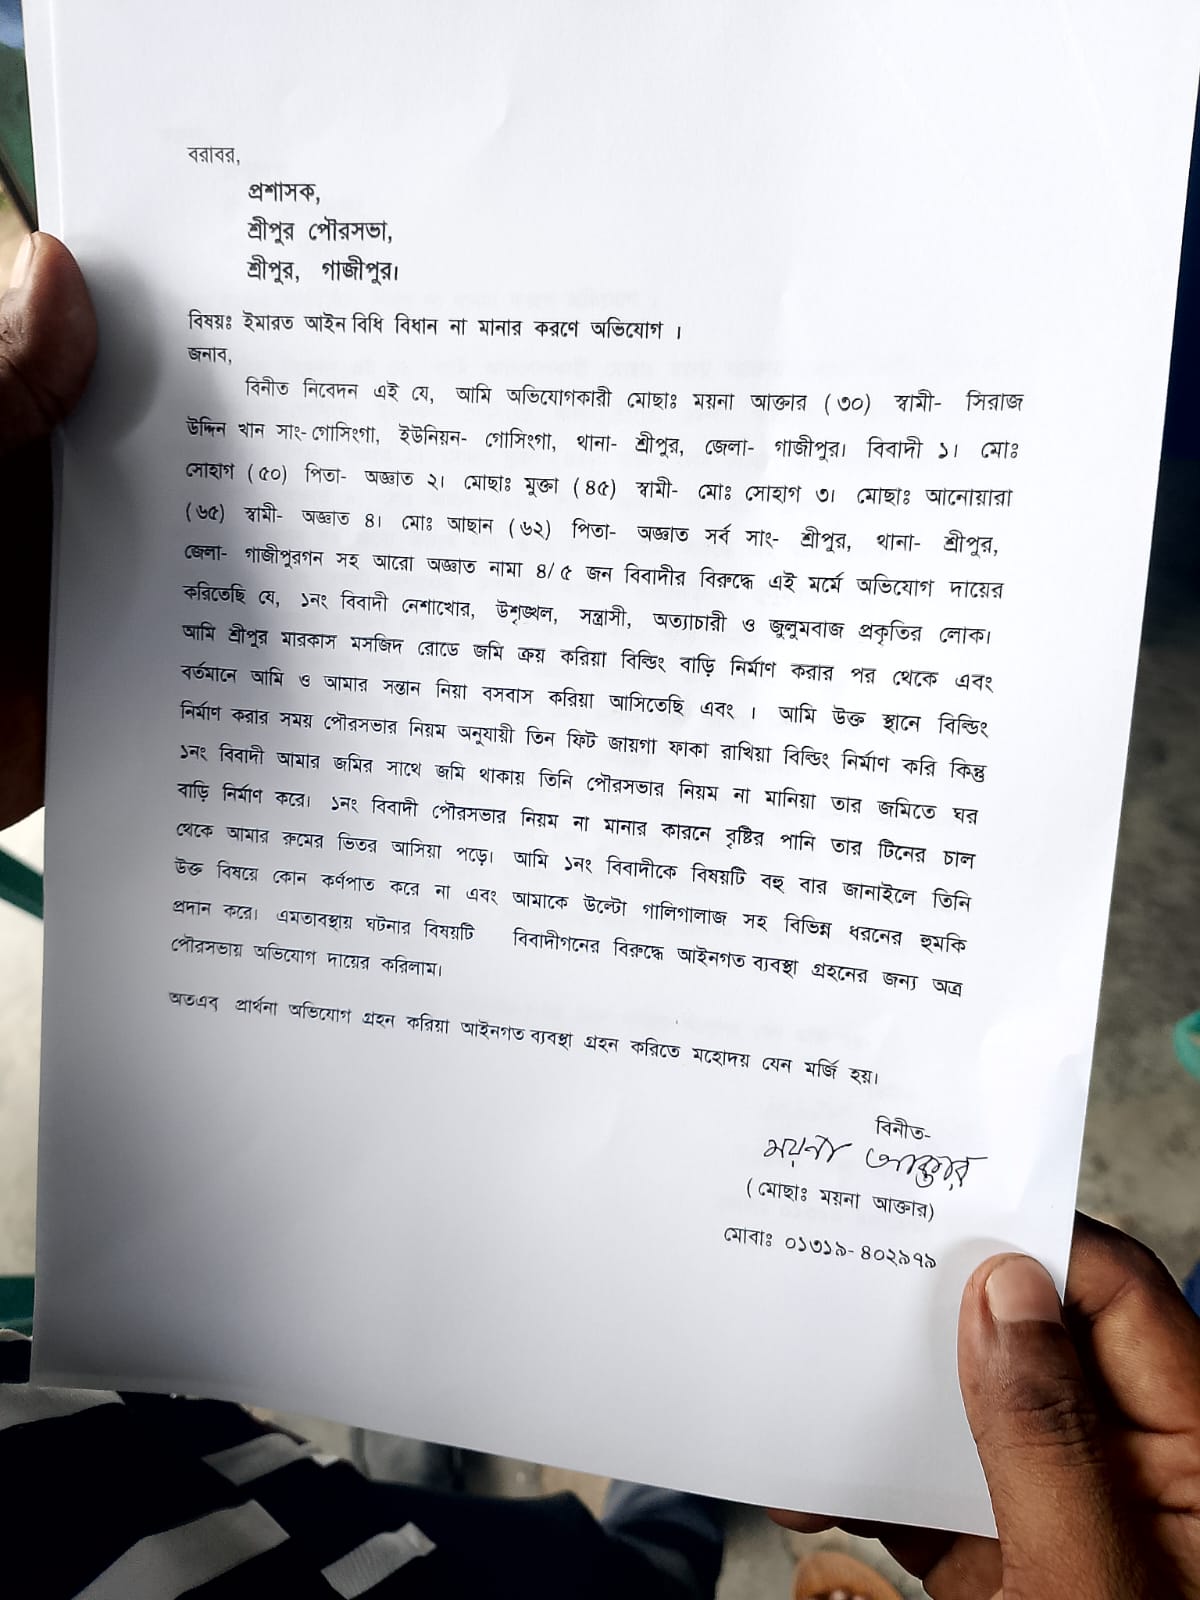 বরাবর,
প্রশাসক,
শ্রীপুর পৌরসভা,
শ্রীপুর, গাজীপুর।
বিষয়ঃ ইমারত আইন বিধি বিধান না মানার করণে অভিযোগ ।
জনাব,
বিনীত নিবেদন এই যে, আমি অভিযোগকারী মোছাঃ ময়না আক্তার (৩০) স্বামী- সিরাজ
উদ্দিন খান সাং-গোসিংগা, ইউনিয়ন- গোসিংগা, থানা- শ্রীপুর, জেলা- গাজীপুর। বিবাদী ১। মোঃ
সোহাগ (৫০) পিতা- অজ্ঞাত ২। মোছাঃ মুক্তা (৪৫) স্বামী- মোঃ সোহাগ ৩। মোছাঃ আনোয়ারা
(৬৫) স্বামী- অজ্ঞাত ৪। মোঃ আছান (৬২) পিতা- অজ্ঞাত সর্ব সাং- শ্রীপুর, থানা- শ্রীপুর,
জেলা- গাজীপুরগন সহ আরো অজ্ঞাত নামা ৪/৫ জন বিবাদীর বিরুদ্ধে এই মর্মে অভিযোগ দায়ের
করিতেছি যে, ১নং বিবাদী নেশাখোর, উশৃঙ্খল, সন্ত্রাসী, অত্যাচারী ও জুলুমবাজ প্রকৃতির লোক।
আমি শ্রীপুর মারকাস মসজিদ রোডে জমি ক্রয় করিয়া বিল্ডিং বাড়ি নির্মাণ করার পর থেকে এবং
বর্তমানে আমি ও আমার সন্তান নিয়া বসবাস করিয়া আসিতেছি এবং । আমি উক্ত স্থানে বিল্ডিং
নির্মাণ করার সময় পৌরসভার নিয়ম অনুযায়ী তিন ফিট জায়গা ফাকা রাখিয়া বিল্ডিং নির্মাণ করি কিন্তু
১নং বিবাদী আমার জমির সাথে জমি থাকায় তিনি পৌরসভার নিয়ম না মানিয়া তার জমিতে ঘর
বাড়ি নির্মাণ করে। ১নং বিবাদী পৌরসভার নিয়ম না মানার কারনে বৃষ্টির পানি তার টিনের চাল
থেকে আমার রুমের ভিতর আসিয়া পড়ে। আমি ১নং বিবাদীকে বিষয়টি বহু বার জানাইলে তিনি
উক্ত বিষয়ে কোন কর্ণপাত করে না এবং আমাকে উল্টো গালিগালাজ সহ বিভিন্ন ধরনের হুমকি
প্রদান করে। এমতাবস্থায় ঘটনার বিষয়টি বিবাদীগনের বিরুদ্ধে আইনগত ব্যবস্থা গ্রহনের জন্য অত্র
পৌরসভায় অভিযোগ দায়ের করিলাম।
অতএব প্রার্থনা অভিযোগ গ্রহন করিয়া আইনগত ব্যবস্থা গ্রহন করিতে মহোদয় যেন মর্জি হয়।
বিনীত-
ময়না আক্তার
(মোছাঃ ময়না আক্তার)
মোবাঃ ০১৩১৯-৪০২৯৭৯